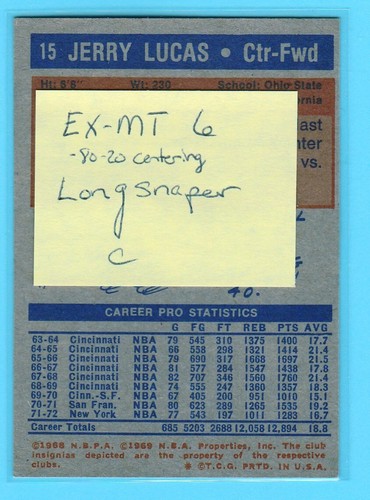 15 JERRY LUCAS • Ctr-Fwd
Ht: 6'8" Wt: 230 School: Ohio State
EX-MT 6
-80-20 centering
Long snaper
C
ast
vs.
40.
CAREER PRO STATISTICS
G FG FT REB PTS AVG
63-64 Cincinnati NBA 79 545 310 1375 1400 17.7
64-65 Cincinnati NBA 66 558 298 1321 1414 21.4
65-66 Cincinnati NBA 79 690 317 1668 1697 21.5
66-67 Cincinnati NBA 81 577 284 1547 1438 17.8
67-68 Cincinnati NBA 82 707 346 1560 1760 21.4
68-69 Cincinnati NBA 74 555 247 1360 1357 18.3
69-70 Cinn.-S.F. NBA 67 405 200 951 1010 15.1
70-71 San Fran. NBA 80 623 289 1265 1535 19.2
71-72 New York NBA 77 543 197 1011 1283 16.7
Career Totals 685 5203 2688 12,058 12,894 18.8
©1968 N.B.P.A. ©1969 N.B.A. Properties, Inc. The club
insignias depicted are the property of the respective
clubs. ©T.C.G. PRTD. IN U.S.A.